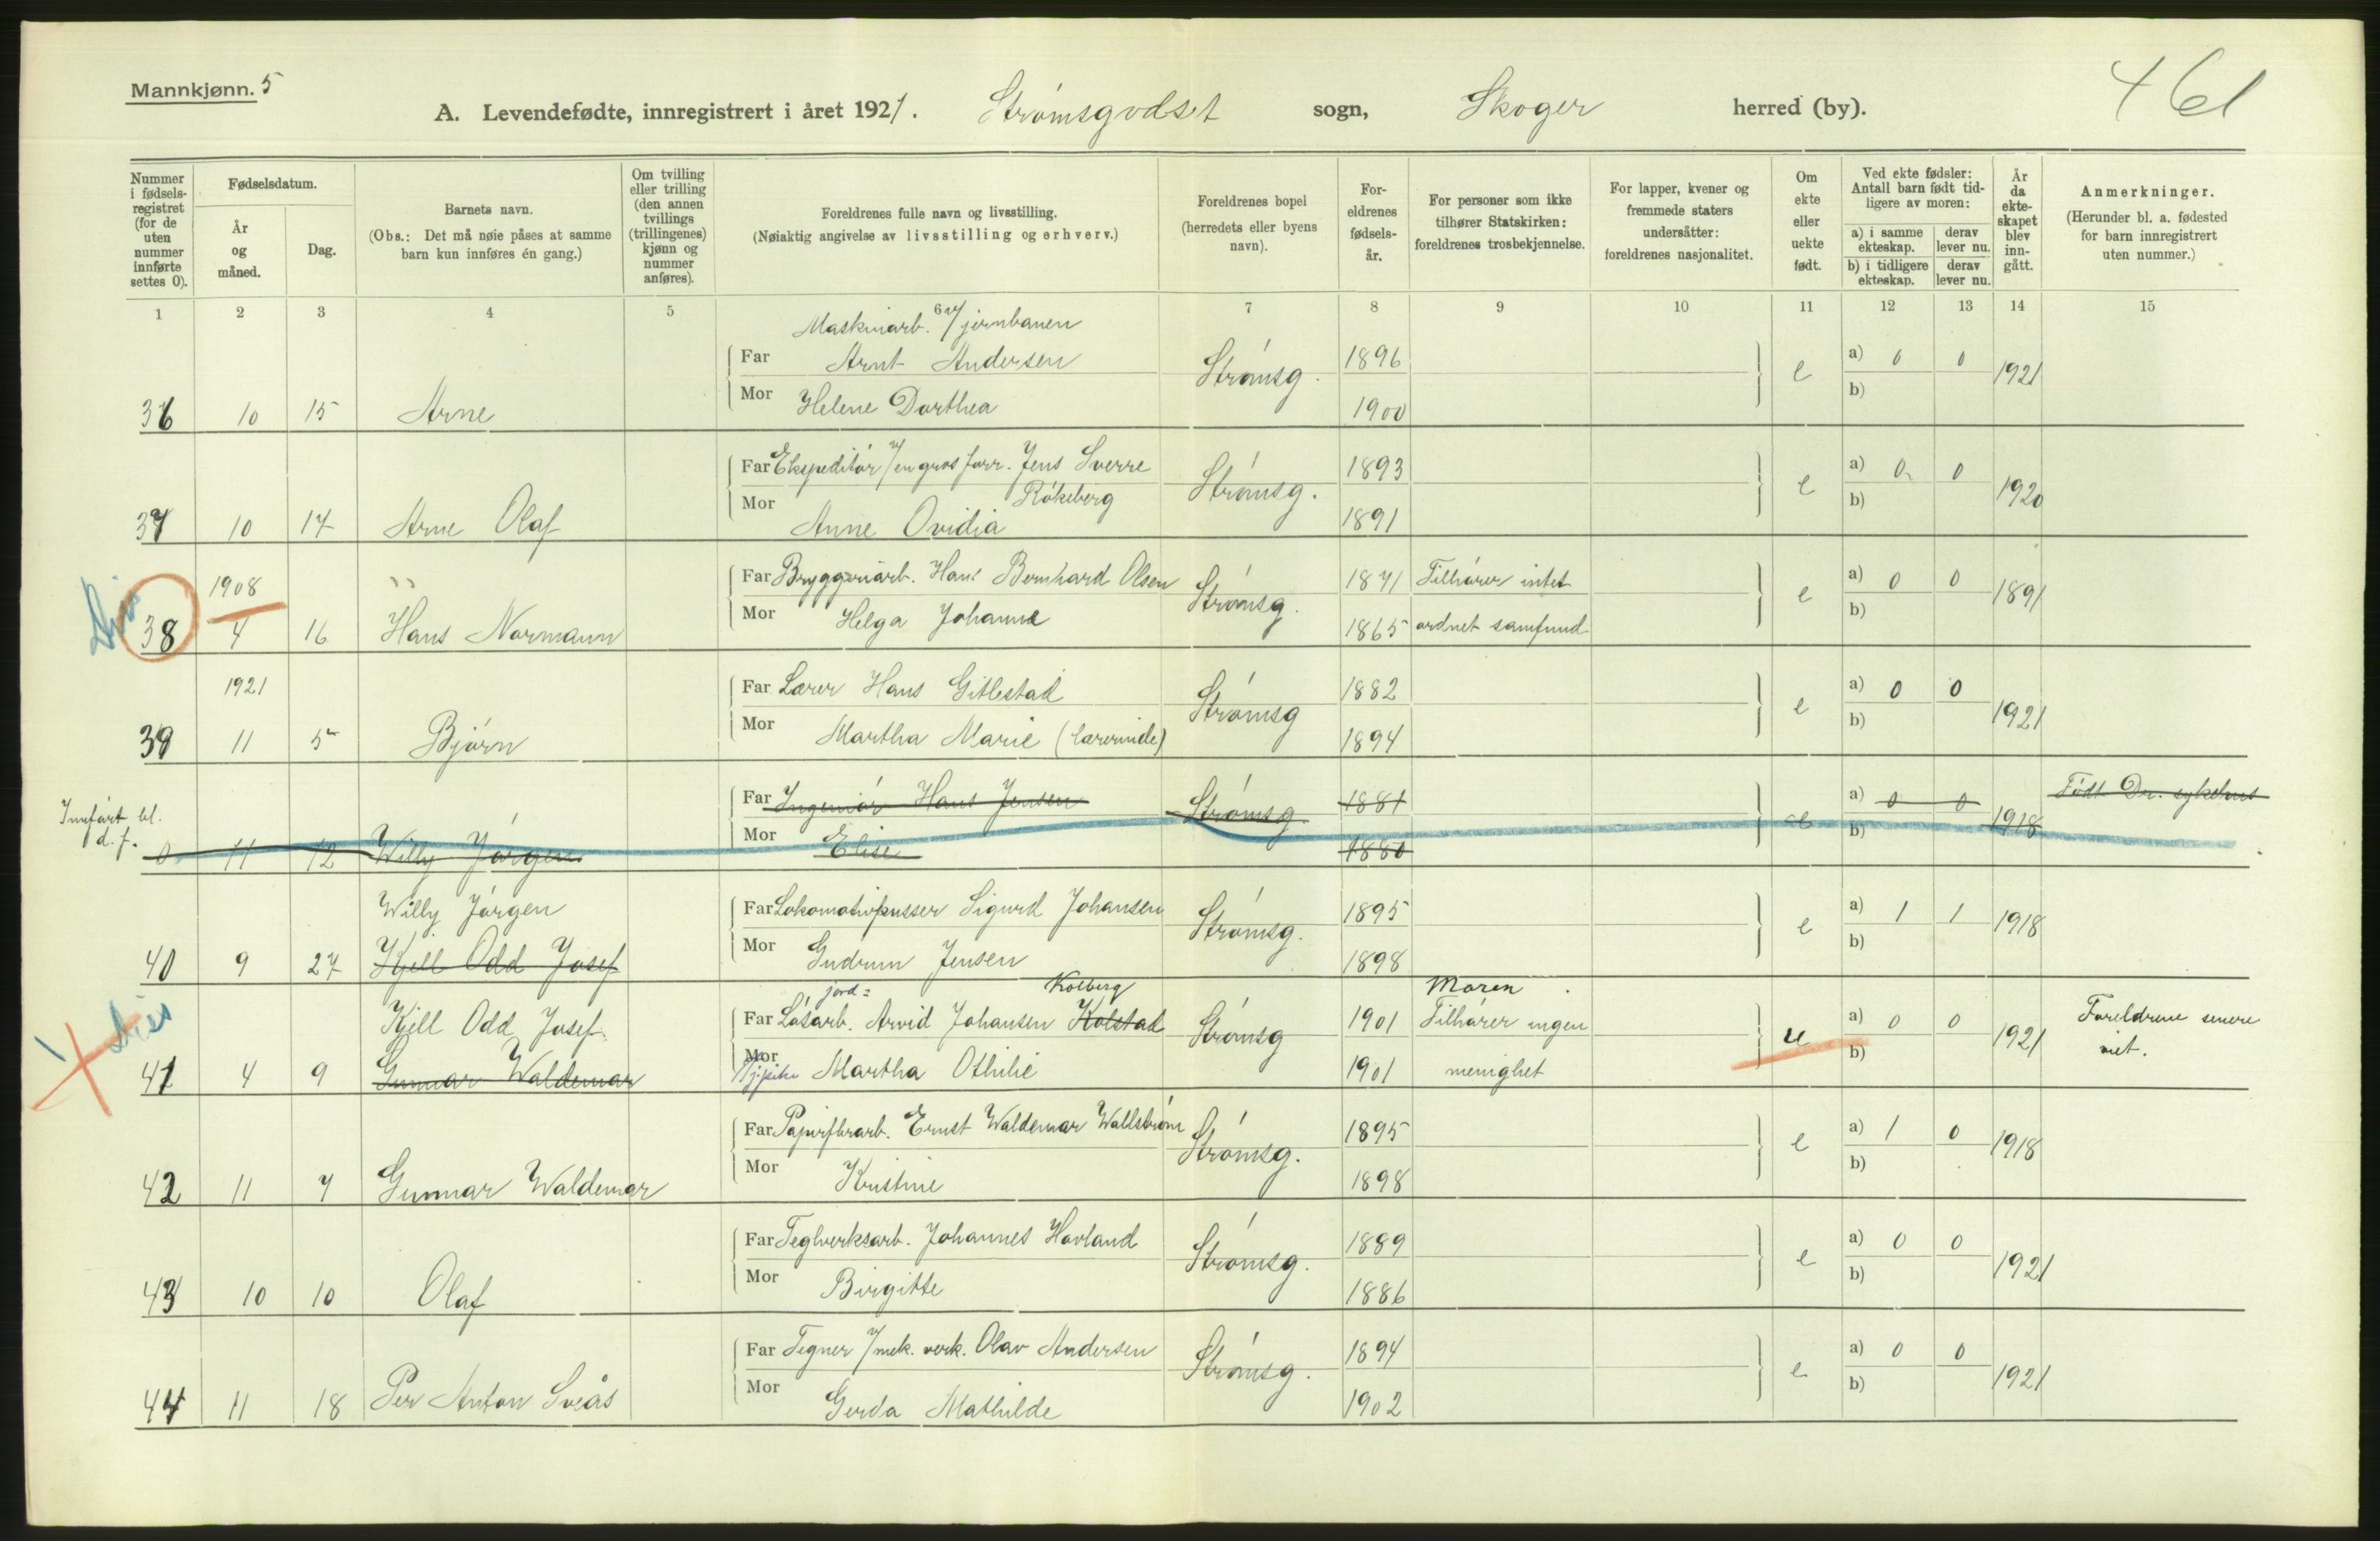 Mannkjønn. 5
A. Levendefødte, innregistrert i året 1921. Strømsgodset sogn, Skoger herred (by). 461
Nummer i fødsels-registret (for de uten nummer innførte settes 0).
Fødselsdatum.
År og måned.
Dag.
Barnets navn.
(Obs.: Det må nøie påses at samme barn kun innføres én gang.)
Om tvilling eller trilling (den annen tvillings (trillingenes) kjønn og nummer anføres).
Foreldrenes fulle navn og livsstilling.
(Nøiaktig angivelse av livsstilling og erhverv.)
Foreldrenes bopel
(herredets eller byens navn).
For-eldrenes fødsels-år.
For personer som ikke tilhører Statskirken: foreldrenes trosbekjennelse.
For lapper, kvener og fremmede staters undersåtter: foreldrenes nasjonalitet.
Om ekte eller uekte født.
Ved ekte fødsler: Antall barn født tid-ligere av moren:
a) i samme ekteskap. derav lever nu.
b) i tidligere ekteskap. derav lever nu.
År da ekte-skapet blev inn-gått.
Anmerkninger.
(Herunder bl. a. fødested for barn innregistrert uten nummer.)
1 2 3 4 5 6 7 8 9 10 11 12 13 14 15
Maskinarb. v/ jernbanen
Far Arnt Andersen Strømsg. 1896 e a) 0 0 1921
36 10 15 Arne Mor Helene Dorthea 1900 b)
Far Ekspeditør v/ en gros forr. Jens Sverre Strømsg. 1893 e a) 0 0 1920
Røkeberg
37 10 17 Arne Olaf Mor Anne Ovidia 1891 b)
1908 Far Bryggeriarb. Hans Bernhard Olsen Strømsg. 1871 Tilhører intet e a) 0 0 1891
38 4 16 Hans Normann Mor Helga Johanne 1865 ordnet samfund b)
1921 Far Lærer Hans Gitlestad Strømsg 1882 e a) 0 0 1921
39 11 5 Bjørn Mor Martha Marie (lærerinde) 1894 b)
Innført bl. d. f.
Far Ingeniør Hans Jensen Strømsg. 1881 a) 0 0 1918 Født Dr. sykehus
0 11 12 Willy Jørgen Mor Elise 1880 b)
Willy Jørgen Far Lokomotivpusser Sigurd Johansen Strømsg. 1895 e a) 1 1 1918
40 9 27 Kjell Odd Josef Mor Gudrun Jensen 1898 b)
jord= Kolberg Moren
Kjell Odd Josef Far Løsarb. Arvid Johansen Kolstad Strømsg 1901 Tilhører ingen u a) 0 0 1921 Foreldrene senere
41 4 9 Gunnar Waldemar Mor Martha Othilie 1901 menighet b) viet.
Far Papirfbrarb. Ernst Waldemar Wallstrøm Strømsg. 1895 e a) 1 0 1918
42 11 7 Gunnar Waldemar Mor Kristine 1898 b)
Far Teglverksarb. Johannes Hovland Strømsg. 1889 e a) 0 0 1921
43 10 10 Olaf Mor Birgitte 1886 b)
Far Tegner v/ mek. verk. Olav Andersen Strømsg. 1894 e a) 0 0 1921
44 11 18 Per Anton Sveås Mor Gerda Mathilde 1902 b)